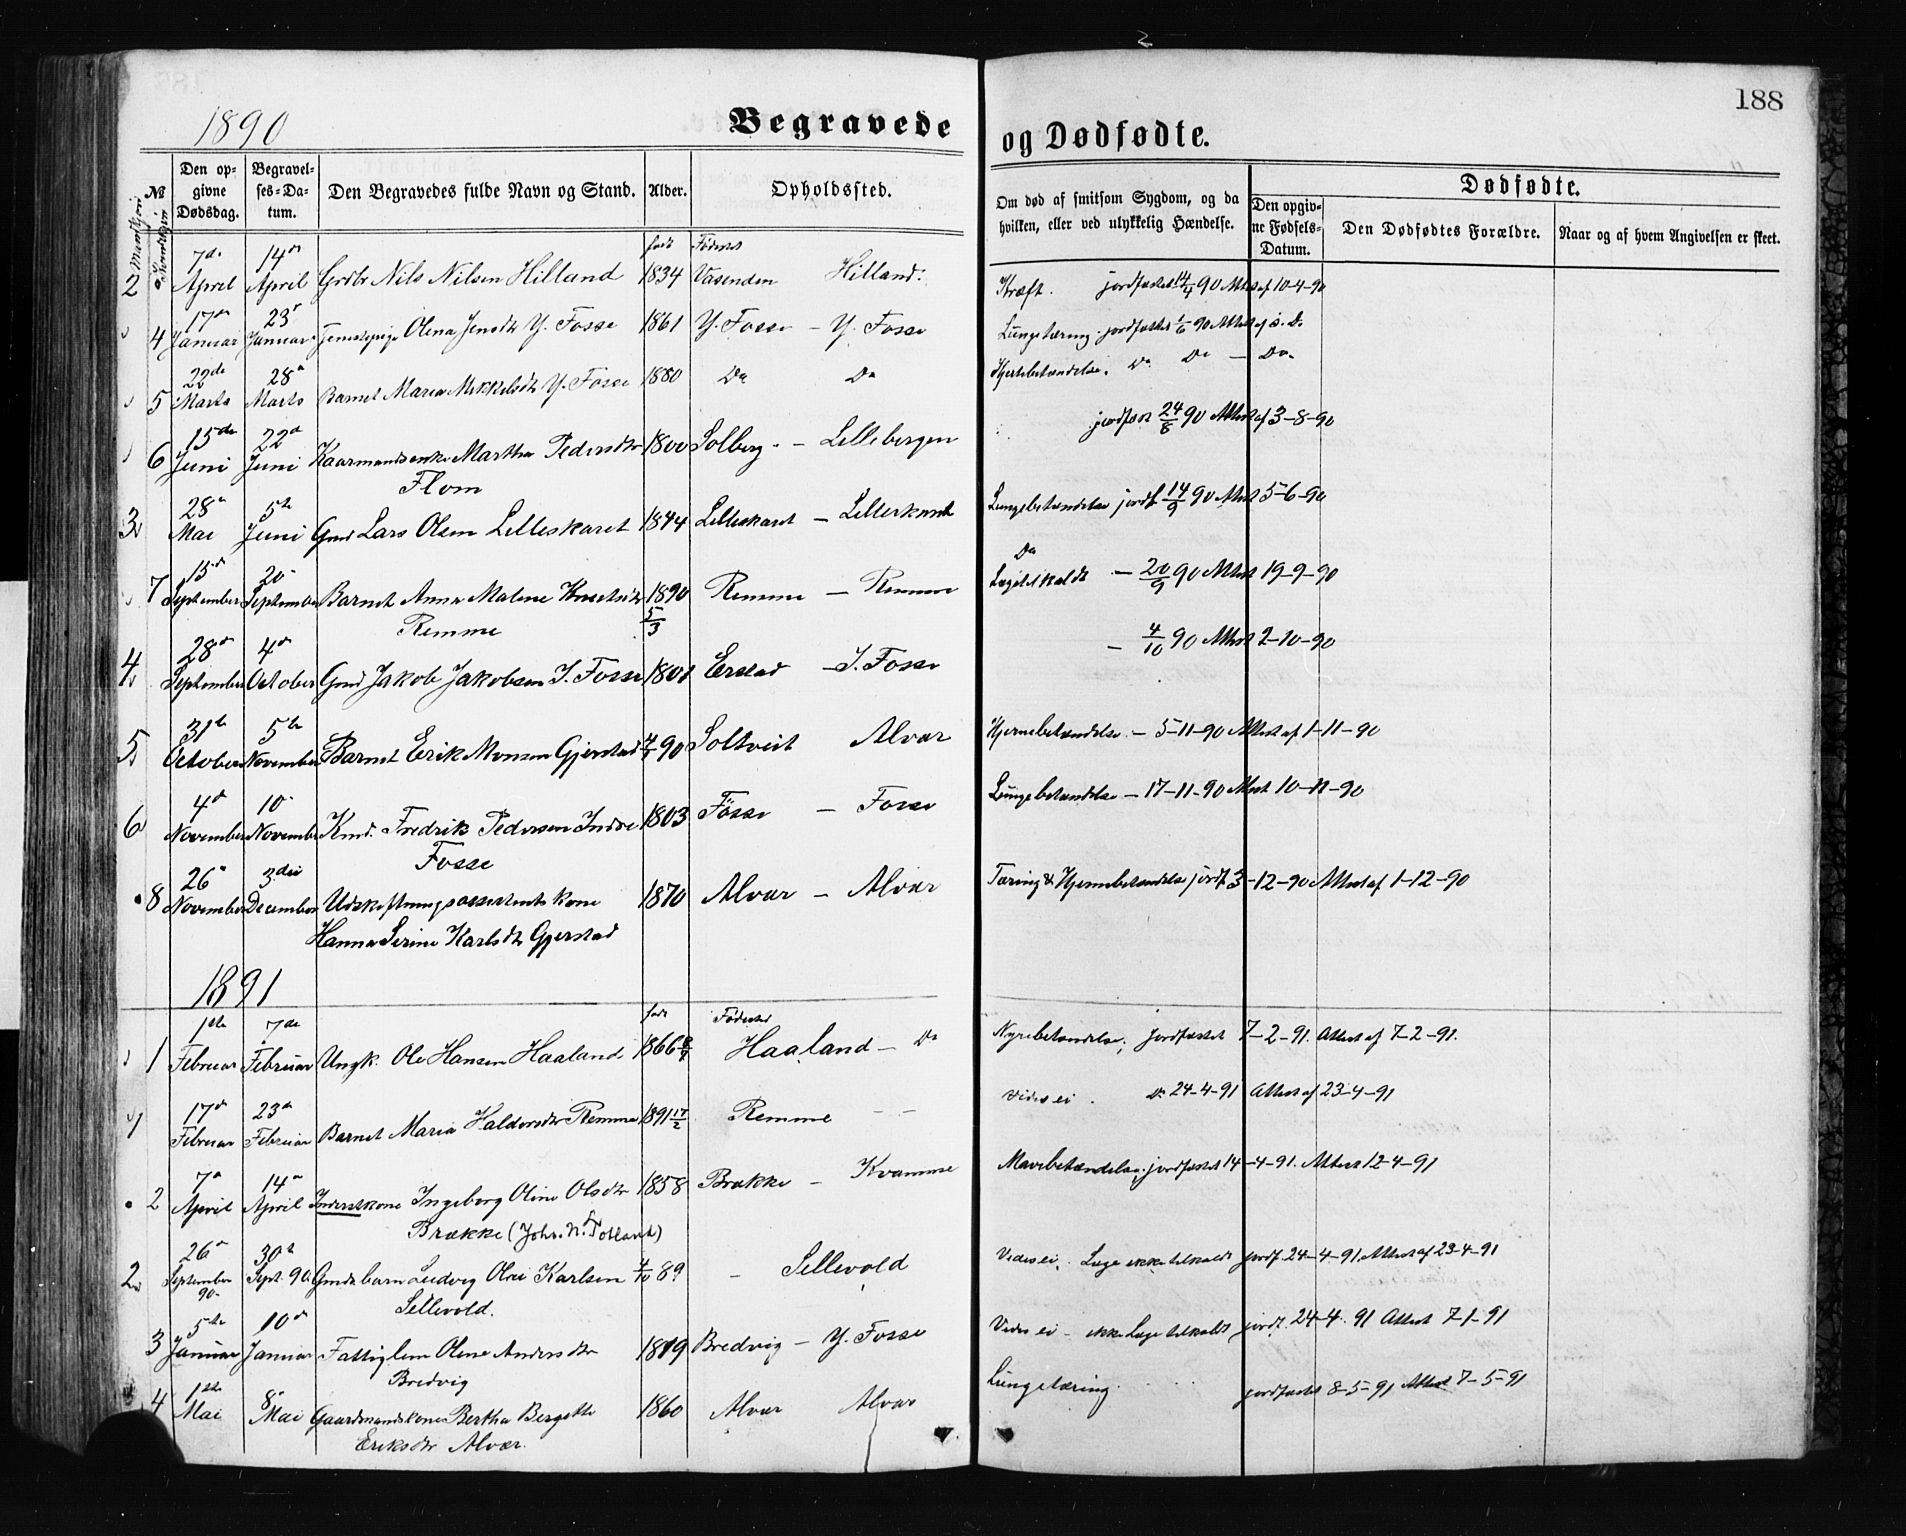 188
1890
Begravede og Dødfødte.
Mandkjøn Kvindkjøn № Den opgivne Dødsdag. Begravelses-Datum. Den Begravedes fulde Navn og Stand. Alder. Opholdssted. Om død af smitsom Sygdom, og da hvilken, eller ved ulykkelig Hændelse. Dødfødte. Den opgivne Fødsels-Datum. Den Dødfødtes Forældre. Naar og af hvem Angivelsen er skeet.
født Fødested
2 7de April 14de April Grdbr Nils Nilsen Hilland 1834 Vasenden Hilland. Kræft. jordfæstet 14/4 90 Attest af 10-4-90
4 17de Januar 23de Januar Tjenestepige Olena Jensdtr Y. Fosse 1861 Y. Fosse – Y. Fosse Lungetæring. jordfæstet 1/6 90 Attest af s. D.
5 22de Marts 28de Marts Barnet Maria Mikkelsdtr Y. Fosse 1880 Do Do Hjertebetændelse. Do Do – Do
6 15de Juni 22de Juni Kaarmandsenke Martha Pedersdtr 1800 Solberg – Lillebergen jordfæst 24/8 90 Attest af 3-8-90
Flom
3 28de Mai 5te Juni Gmd Lars Olsen Lilleskaret 1844 Lilleskaret – Lilleskaret Lungebetændelse jordf. 14/9 90 Attest 5-6-90
7 15de September 20 September Barnet Anna Malene Knutsdtr 1890 5/3 Remme – Remme Do Læge tilkaldt – 20/9 90 Attest 19-9-90
Remme
4 28de September 4de October Gmd Jakob Jakobsen I. Fosse 1801 Erstad – I. Fosse – 4/10 90 Attest 2-10-90
5 31te October 5te November Barnet Erik Monsen Gjerstad 90 Soltveit Alvær Hjernebetændelse – 5-11-90 Attest af 1-11-90
6 4de November 10 November Kmd. Fredrik Pedersen Indre 1803 Fosse – Fosse Lungebetændelse – 17-11-90 Attest 10-11-90
Fosse
8 26de November 3die December Udskiftningsassistents kone 1870 Alvær – Alvær Tæring & Hjernebetændelse jordf. 3-12-90 Attest af 1-12-90
Hanna Serine Karlsdtr Gjerstad
1891
født Fødested
1 1ste Februar 7de Februar Ungk. Ole Hansen Haaland 1866 Haaland – Do Nyrebetændelse, Jordfæstet 7-2-91. Attest af 7-2-91.
1 17de Februar 23de Februar Barnet Maria Haldorsdtr Remme 1891 17/2 Remme – – Vides ei. Do 24-4-91 Attest af 23-4-91
2 7de April 14de April Inderstkone Ingeborg Oline Olsdtr 1858 Brække – Kvamme Mavebetændelse, jordfæstet 14-4-91. Attest 12-4-91
Brække (Johs. N. Totland)
2 26de September 90 30te Sept. 90 Gmdsbarn Ludvig Olai Karlsen 4/10 89 – Sellevold Vides ei. Læge ikke tilkaldt jordf. 24-4-91 Attest af 23-4-91
Sellevold.
3 5te Januar 10de Januar Fattiglem Olene Andersdtr 1819 Bredvig – Y. Fosse Vides ei – ikke Læge tilkaldt, jordf. 24-4. 91 Attest 7-1-91
Bredvig
4 1ste Mai 8de Mai Gaardmandskone Bertha Bergitte 1860 Alvær Alvær Lungetæring. jordfæstet 8-5-91 Attest 7-5-91
Eriksdtr Alvær.